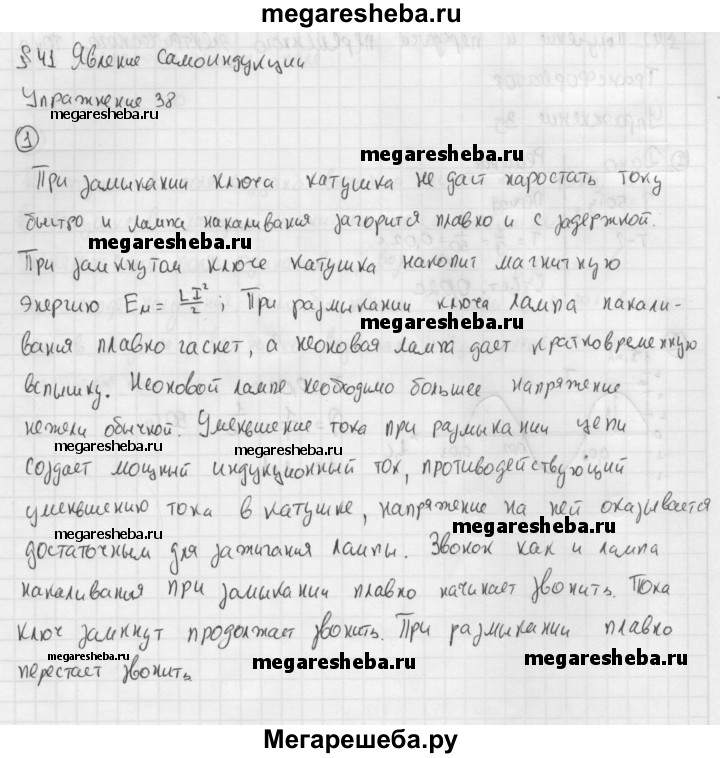 megaresheba.ru
§41 Явление самоиндукции
Упражнение 38
megaresheba.ru
1
megaresheba.ru
При замыкании ключа катушка не даст наростать току
быстро и лампа накаливания загорится плавно и с задержкой.
megaresheba.ru
При замкнутом ключе катушка накопит магнитную
энергию Eм = LI²/2; При размыкании ключа лампа накали-
megaresheba.ru
вания плавно гаснет, а неоновая лампа дает кратковременную
вспышку. Неоновой лампе необходимо большее напряжение
нежели обычной. Уменьшение тока при размыкании цепи
megaresheba.ru megaresheba.ru
создает мощный индукционный ток, противодействующий
уменьшению тока в катушке, напряжение на ней оказывается
megaresheba.ru megaresheba.ru
достаточным для зажигания лампы. Звонок как и лампа
накаливания при замыкании плавно начинает звонить. Пока
ключ замкнут продолжает звонить. При размыкании плавно
megaresheba.ru megaresheba.ru megaresheba.ru
перестает звонить
Мегарешеба.ру